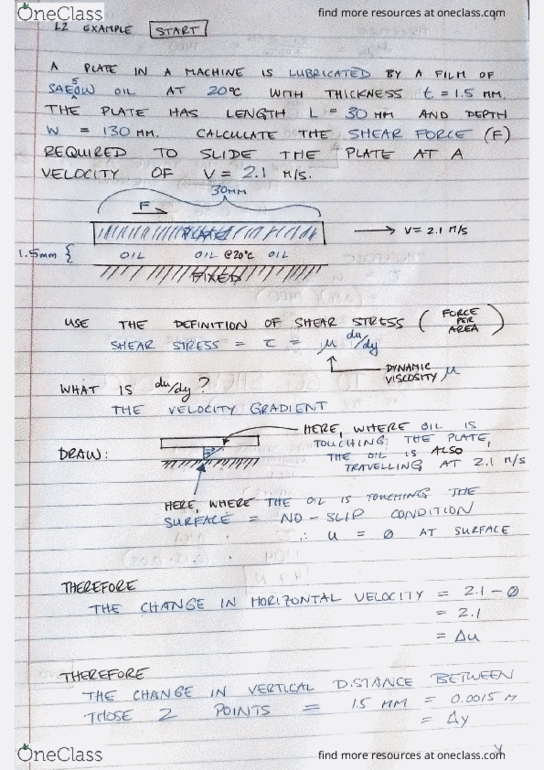 OneClass
find more resources at oneclass.com
L2 EXAMPLE START
A PLATE IN A MACHINE IS LUBRICATED BY A FILM OF
SAE50W OIL AT 20°C WITH THICKNESS t = 1.5 MM.
THE PLATE HAS LENGTH L = 30 MM AND DEPTH
W = 130 MM. CALCULATE THE SHEAR FORCE (F)
REQUIRED TO SLIDE THE PLATE AT A
VELOCITY OF V = 2.1 M/S.
30MM
F
PLATE
V = 2.1 M/S
1.5mm { OIL OIL @20°C OIL
FIXED
USE THE DEFINITION OF SHEAR STRESS (FORCE PER AREA)
SHEAR STRESS = τ = μ du/dy
DYNAMIC VISCOSITY μ
WHAT IS du/dy?
THE VELOCITY GRADIENT
DRAW:
HERE, WHERE OIL IS
TOUCHING THE PLATE,
THE OIL IS ALSO
TRAVELLING AT 2.1 M/S
HERE, WHERE THE OIL IS TOUCHING THE
SURFACE = NO-SLIP CONDITION
∴ u = 0 AT SURFACE
THEREFORE
THE CHANGE IN HORIZONTAL VELOCITY = 2.1 - 0
= 2.1
= Δu
THEREFORE
THE CHANGE IN VERTICAL DISTANCE BETWEEN
THOSE 2 POINTS = 1.5 MM = 0.0015 M
= Δy
OneClass
find more resources at oneclass.com